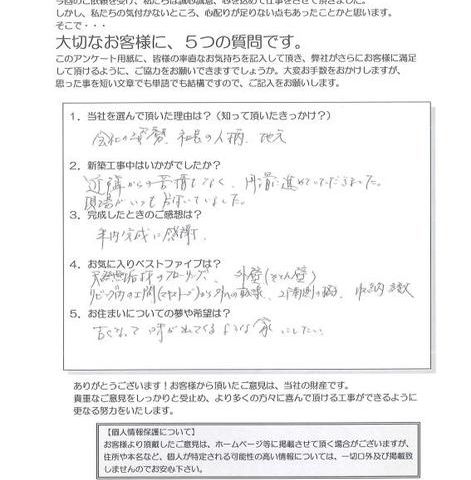 今回のご依頼を受け、私たちは誠心誠意、心を込めて仕事をさせて頂きました。
しかし、私たちの気付かないところ、心配りが足りない点もあったことかと思います。
そこで・・・
大切なお客様に、5つの質問です。
このアンケート用紙に、皆様の率直なお気持ちを記入して頂き、弊社がさらにお客様に満足
して頂けるように、ご協力をお願いできますでしょうか。大変お手数をおかけしますが、
思った事を短い文章でも単語でも結構ですので、ご記入をお願いします。
1．当社を選んで頂いた理由は？（知って頂いたきっかけ？）
会社の姿勢、社長の人柄、地元
2．新築工事中はいかがでしたか？
近隣からの苦情もなく、円滑に進めていただきました。
現場がいつも片付いていました。
3．完成したときのご感想は？
年内完成に感謝
4．お気に入りベストファイブは？
天然無垢材のフローリング、外壁（そとん壁）
の土間 からの 収納
5．お住まいについての夢や希望は？
古くなって味が出てくるような家にしたい
ありがとうございます！お客様から頂いたご意見は、当社の財産です。
貴重なご意見をしっかりと受止め、より多くの方々に喜んで頂ける工事ができるように
更なる努力をいたします。
【個人情報保護について】
お客様より頂戴したご意見は、ホームページ等に掲載させて頂く場合がございますが、
住所や本名など、個人が特定される可能性の高い情報については、一切口外及び掲載致
しませんのでお安心下さい。